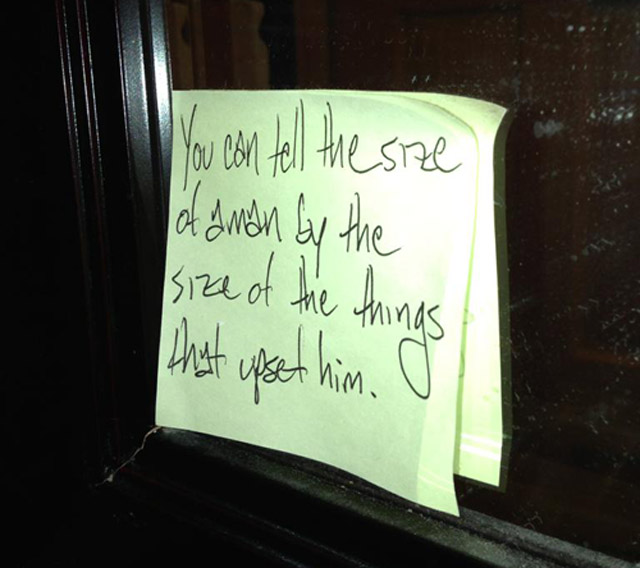 You can tell the size
of a man by the
size of the things
that upset him.